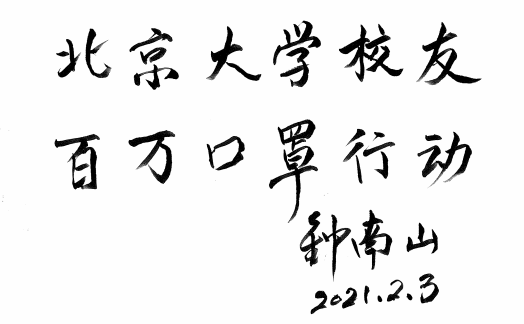 北京大学校友
百万口罩行动
钟南山
2021.2.3